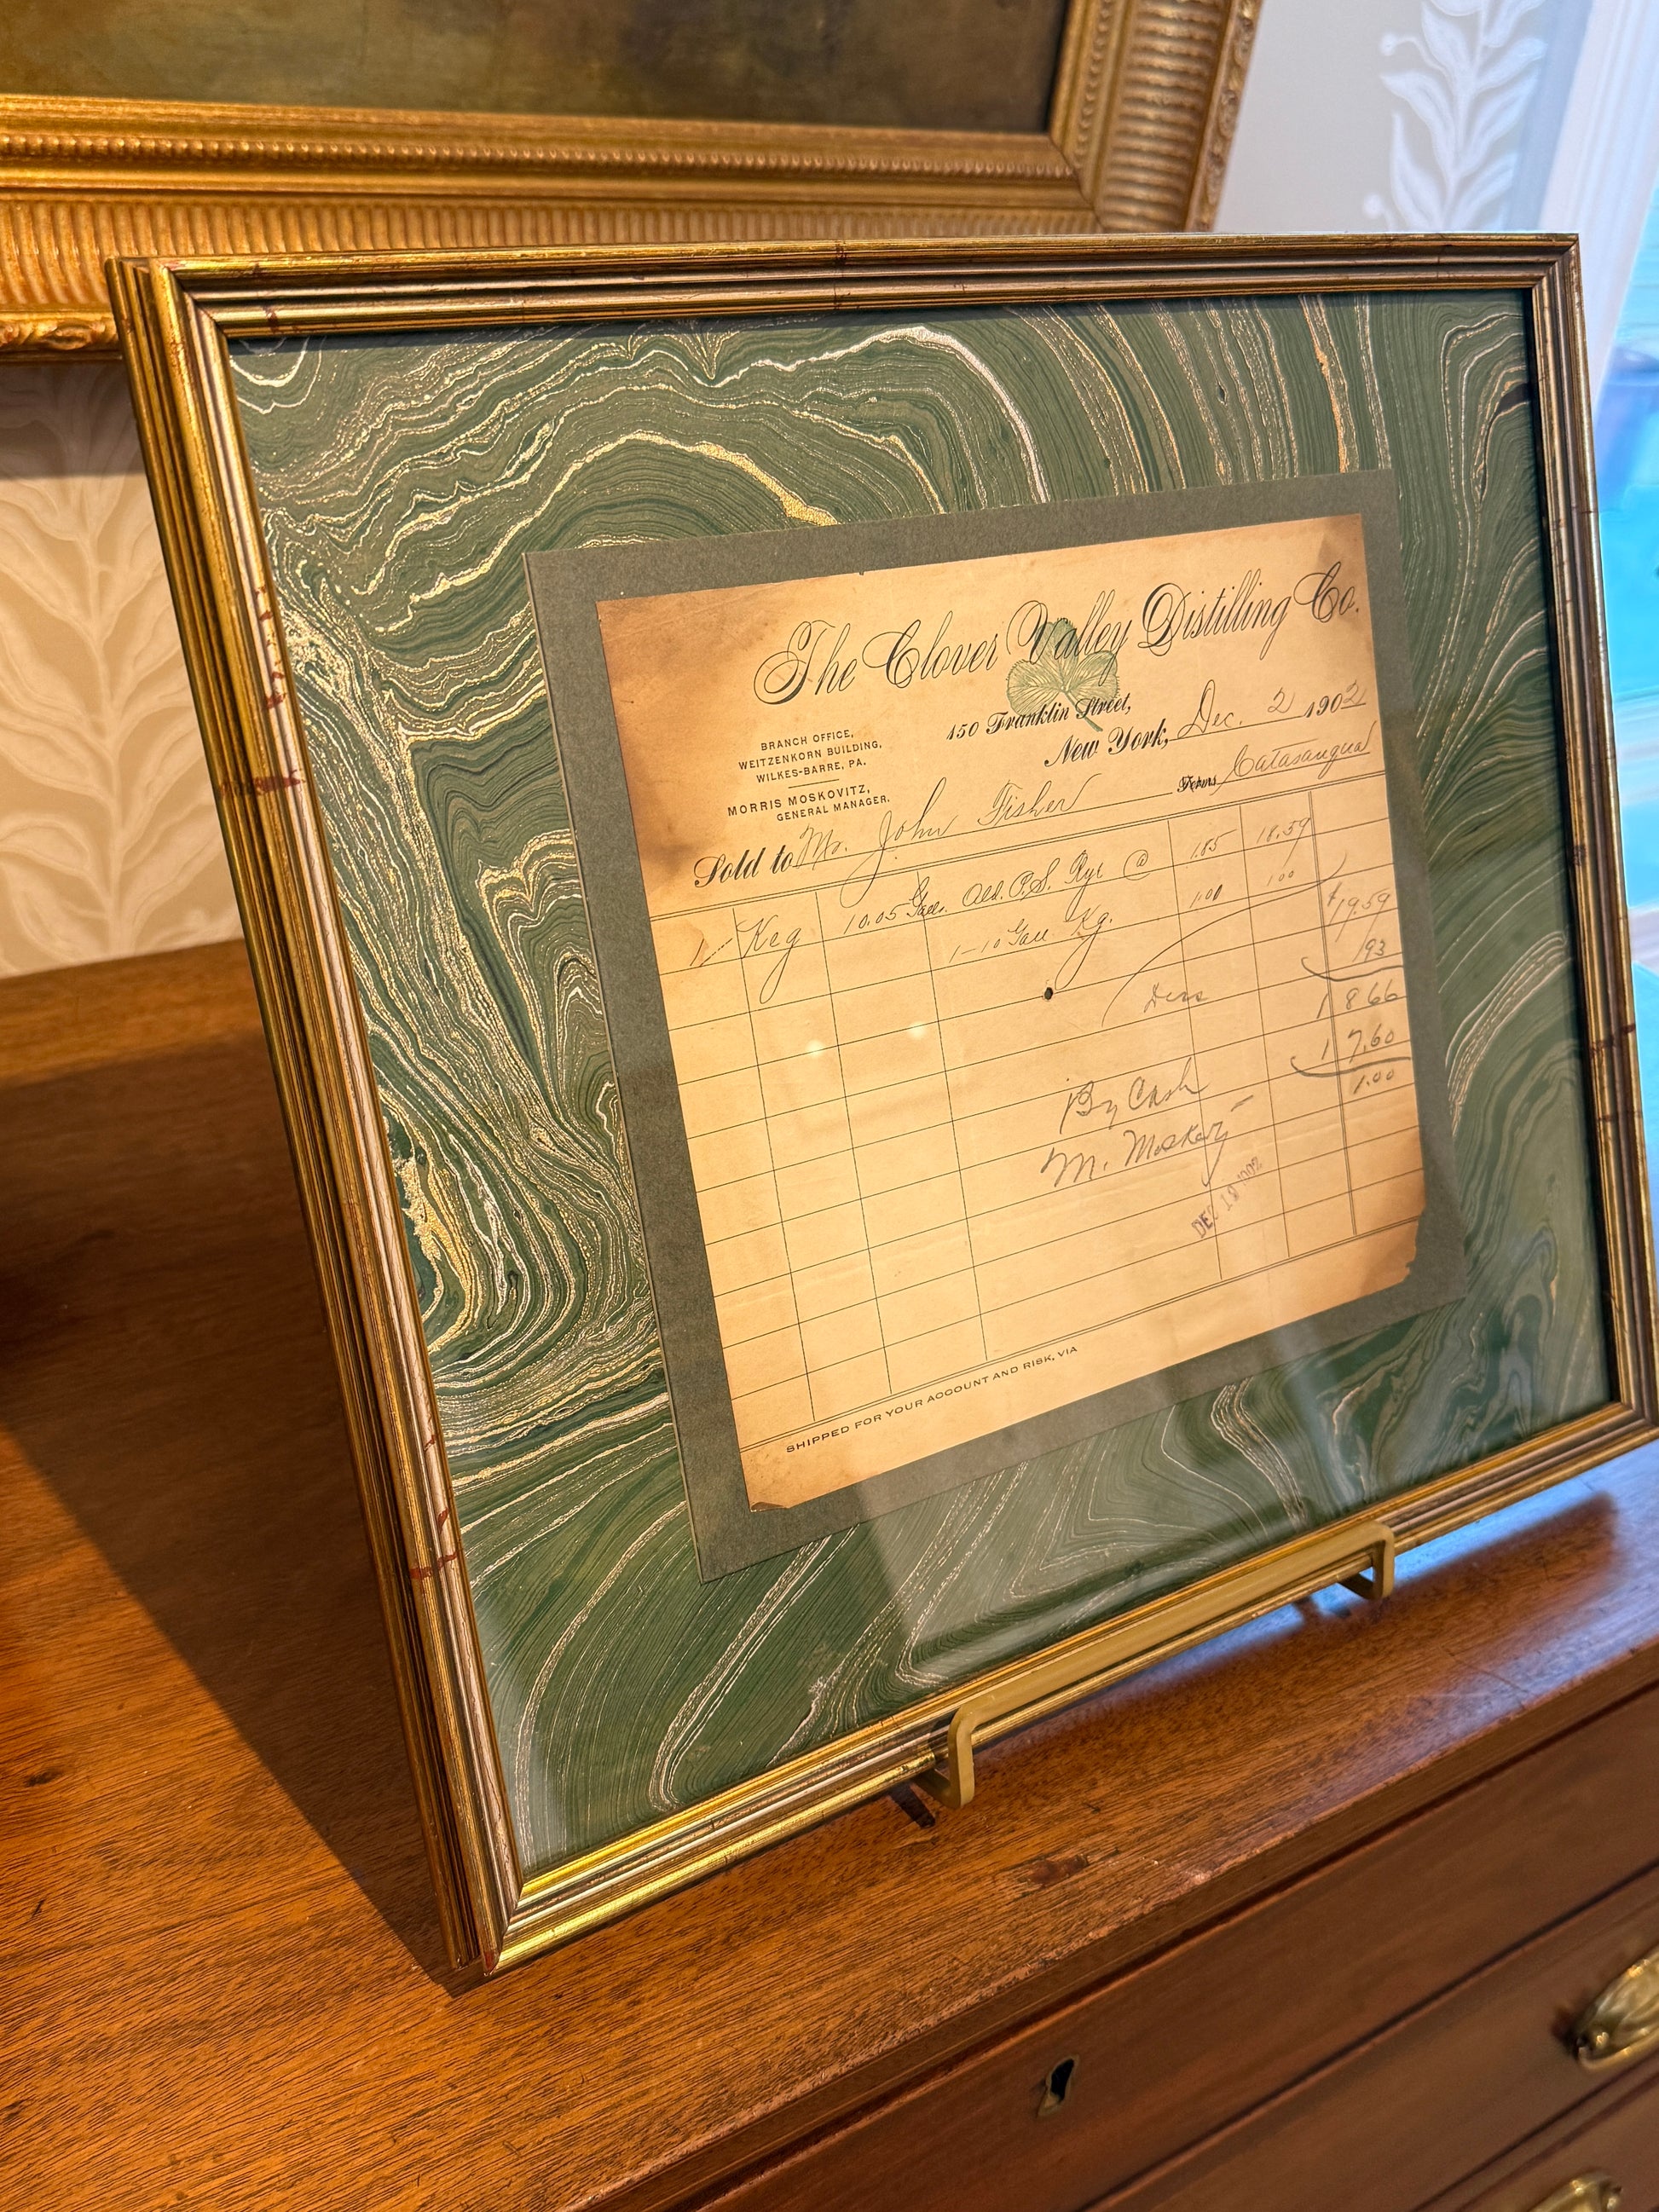 The Clover Valley Distilling Co.
150 Franklin Street,
New York, Dec. 2 1902
BRANCH OFFICE,
WEITZENKORN BUILDING,
WILKES-BARRE, PA.
MORRIS MOSKOVITZ,
GENERAL MANAGER.
Terms, Catasauqua
Sold to Mr. John Fisher
1 Keg 10.05 Galls. Old. P.S. Rye @ 1.85 18.59
1-10 Gall Kg. 1.00 1.00
$19.59
.93
18.66
17.60
1.00
By Cash
M.
DEC 1902
SHIPPED FOR YOUR ACCOUNT AND RISK, VIA